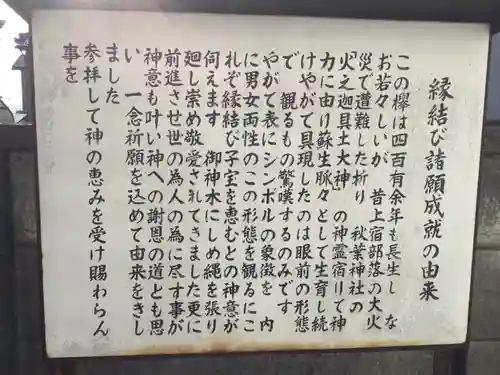 縁結び諸願成就の由来
この欅は四百有余年も長生し な
お若々しいが 昔上宿部落の大火
災で遭難した祈り 秋葉神社の
「火之迦具土大神」の神霊宿りて神
力に由り蘇生脈々として生育し続
けやがて具現したのは眼前の形態
で 観るもの驚嘆するのみです
やがて表にシンボルの象徴を 内
に男女両性のこの形態を観るにこ
れぞ縁結び子宝を恵むとの神意が
伺えます 御神木にしめ縄を張り
廻し崇め敬愛されてきました更に
前進させ世の為人の為に尽す事が
神意も叶い神への謝恩の道とも思
い 一念祈願を込めて由来をきし
ました
参拝して神の恵みを受け賜わらん
事を